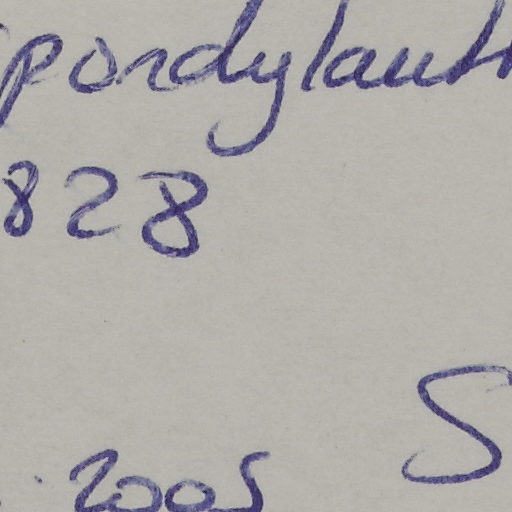 pondylanth
828
S
. 2005